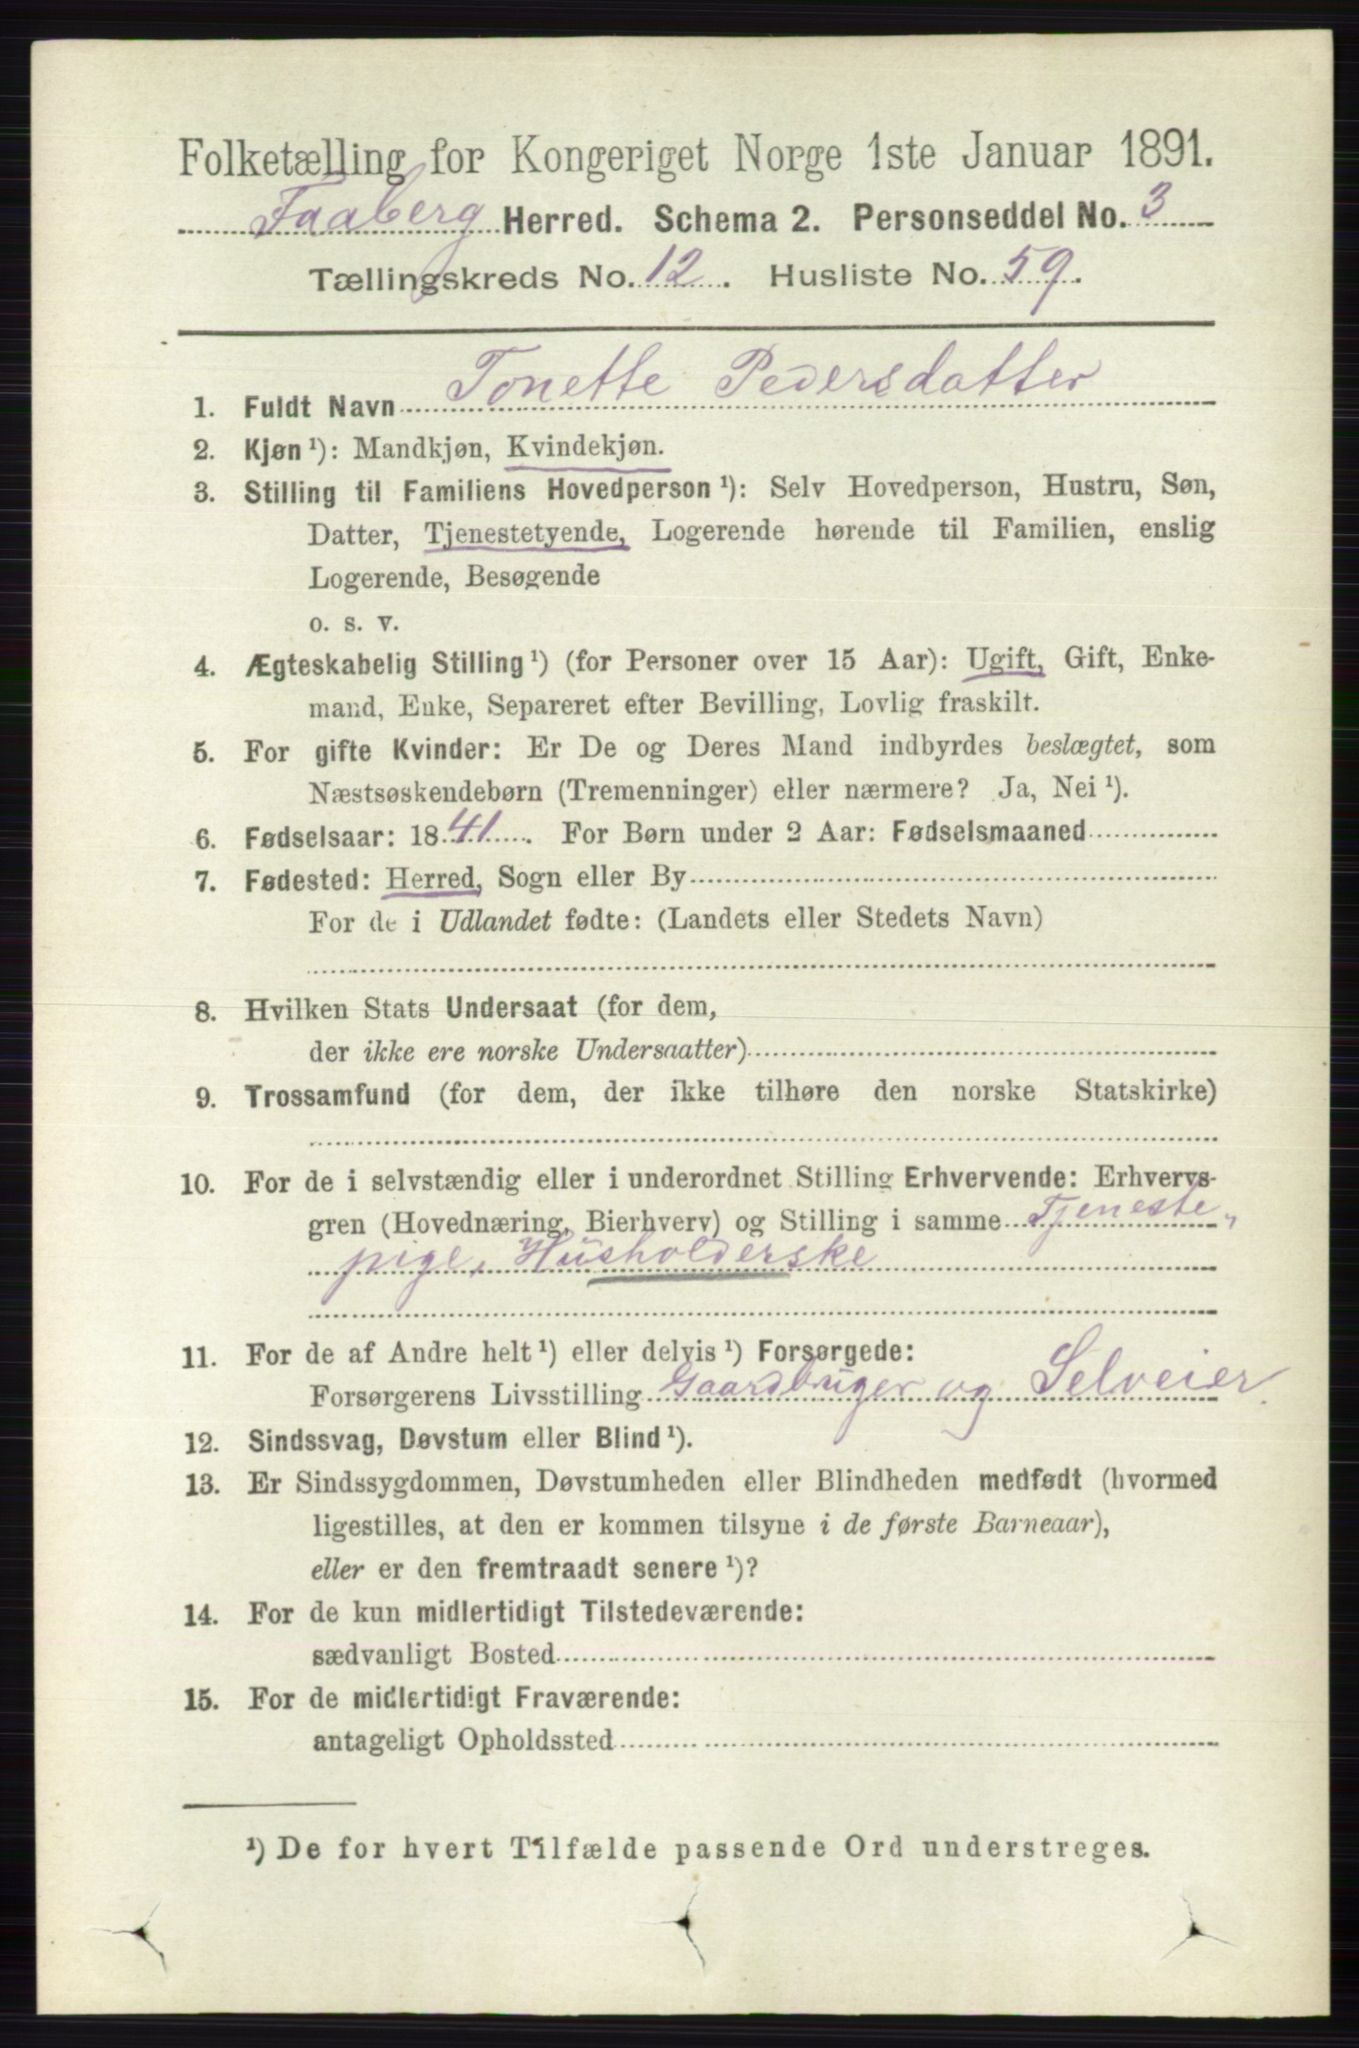 Folketælling for Kongeriget Norge 1ste Januar 1891.
Faaberg Herred. Schema 2. Personseddel No. 3
Tællingskreds No. 12. Husliste No. 59.
1. Fuldt Navn Tonette Pedersdatter
2. Kjøn ¹): Mandkjøn, Kvindekjøn.
3. Stilling til Familiens Hovedperson ¹): Selv Hovedperson, Hustru, Søn,
Datter, Tjenestetyende, Logerende hørende til Familien, enslig
Logerende, Besøgende
o. s. v.
4. Ægteskabelig Stilling ¹) (for Personer over 15 Aar): Ugift, Gift, Enke-
mand, Enke, Separeret efter Bevilling, Lovlig fraskilt.
5. For gifte Kvinder: Er De og Deres Mand indbyrdes beslægtet, som
Næstsøskendebørn (Tremenninger) eller nærmere? Ja, Nei ¹).
6. Fødselsaar: 1841. For Børn under 2 Aar: Fødselsmaaned
7. Fødested: Herred, Sogn eller By
For de i Udlandet fødte: (Landets eller Stedets Navn)
8. Hvilken Stats Undersaat (for dem,
der ikke ere norske Undersaatter)
9. Trossamfund (for dem, der ikke tilhøre den norske Statskirke)
10. For de i selvstændig eller i underordnet Stilling Erhvervende: Erhvervs-
gren (Hovednæring, Bierhverv) og Stilling i samme Tjeneste„
pige, Husholderske
11. For de af Andre helt ¹) eller delvis ¹) Forsørgede:
Forsørgerens Livsstilling Gaardbruger og Selveier.
12. Sindssvag, Døvstum eller Blind ¹).
13. Er Sindssygdommen, Døvstumheden eller Blindheden medfødt (hvormed
ligestilles, at den er kommen tilsyne i de første Barneaar),
eller er den fremtraadt senere ¹)?
14. For de kun midlertidigt Tilstedeværende:
sædvanligt Bosted
15. For de midlertidigt Fraværende:
antageligt Opholdssted
¹) De for hvert Tilfælde passende Ord understreges.